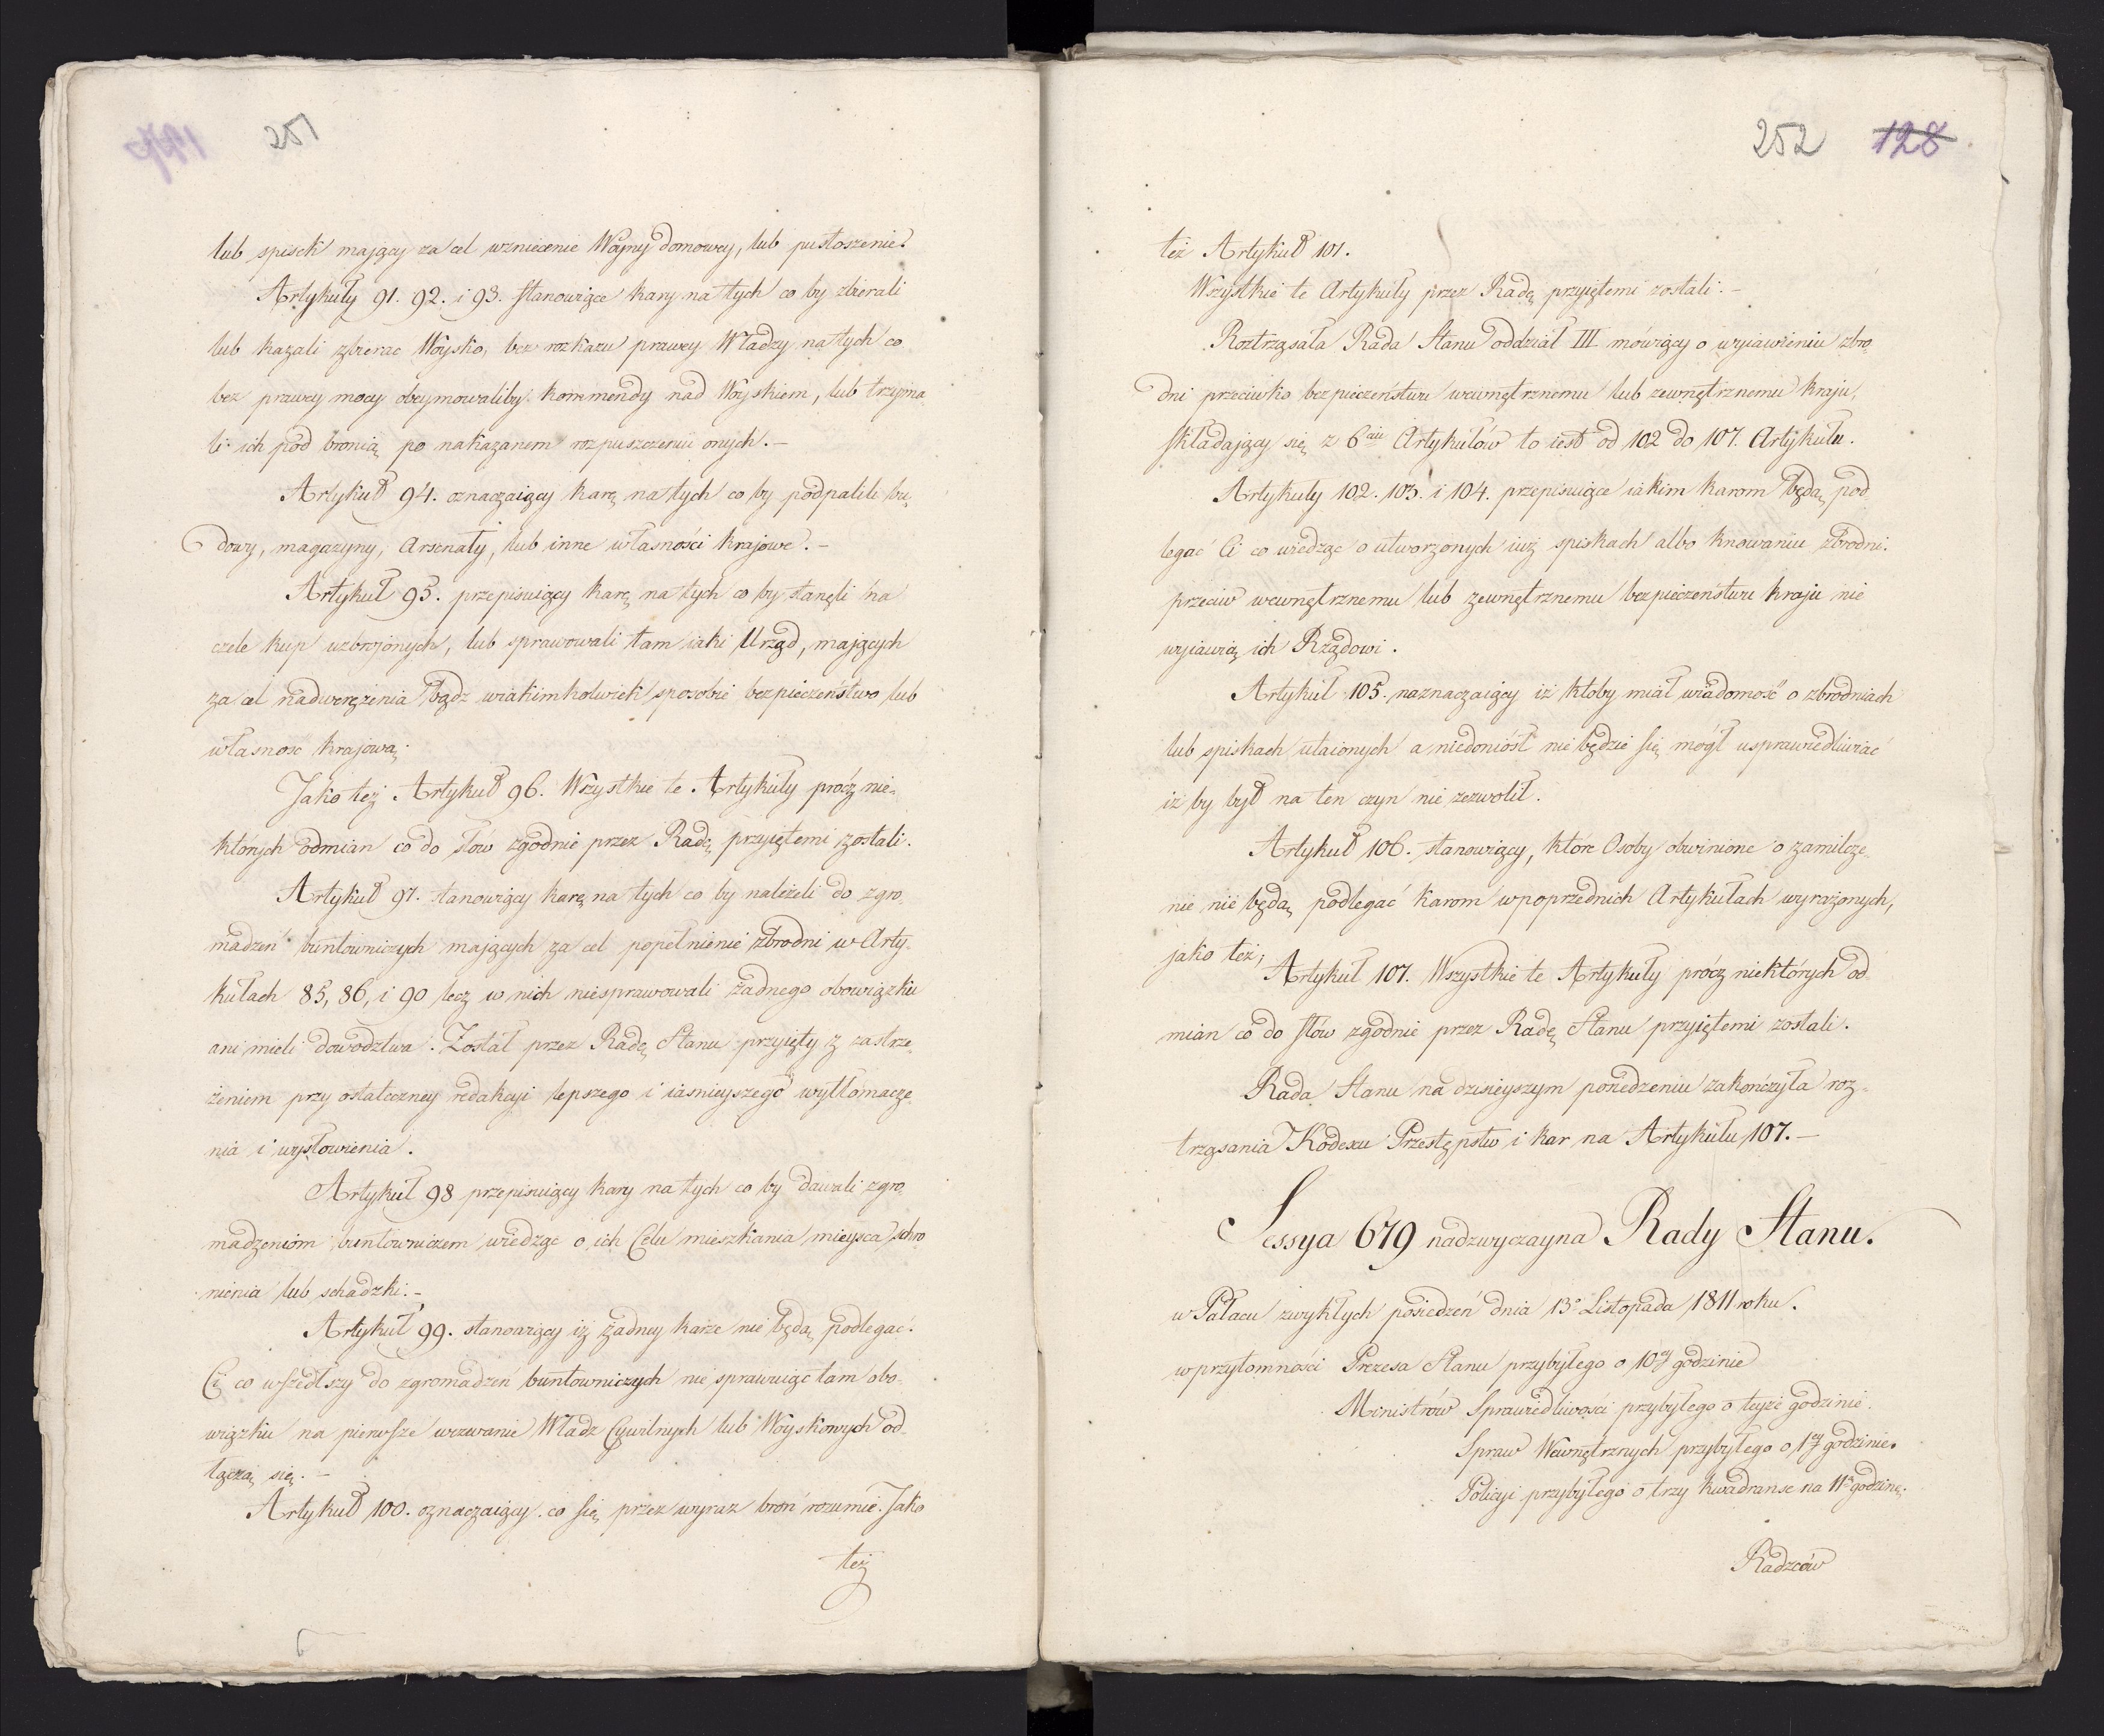 251
lub spisek mający za cel wzniecenie Woyny domowey, lub pustoszenie.
Artykuły 91. 92. i 93. stanowiące kary na tych co by zbierali
lub kazali zbierac Woysko, bez rozkazu prawey Władzy na tych co
bez prawey mocy obeymowaliby kommendy nad Woyskiem, lub trzyma
li ich pod bronią po nakazanem rozpuszczeniu onych. –
Artykuł 94. oznaczaiący karę na tych co by podpalili bu,
dowy, magazyny, Arsenały, lub inne własności krajowe. –
Artykuł 95. przepisuiący karę na tych co by stanęli na
czele kup uzbrojonych, lub sprawowali tam iaki Urząd, mających
za cel nadwerężenia bądz wiakimkolwiek sposobie bezpieczeństwo lub
własność krajową.
Jako też Artykuł 96. Wszystkie te Artykuły prócz nie-
których odmian co do słów zgodnie przez Radę przyiętemi zostali.
Artykuł 97. stanowiący karę na tych co by należeli do zgro,
madzeń buntowniczych mających za cel popełnienie zbrodni w Arty-
kułach 85, 86, i 90 lecz w nich niesprawowali żadnego obowiązku
ani mieli dowodztwa. Został przez Radę Stanu przyięty z zastrze,
żeniem przy ostateczney redakcyi lepszego i iasnieyszego wytłomacze
nia i wysłowienia.
Artykuł 98 przepisuiący kary na tych co by dawali zgro,
madzeniom buntowniczem wiedząc o ich Celu mieszkania mieysca schro
nienia lub schadzki. –
Artykuł 99. stanowiący iż żadney karze nie będą podlegać.
Ci co wszedłszy do zgromadzeń buntowniczych nie sprawuiąc tam obo-
wiązku na pierwsze wezwanie Władz Cywilnych lub Woyskowych od-
łączą się. –
Artykuł 100. oznaczaiący co się przez wyraz broń rozumie. Jako
też
252 128
też Artykuł 101.
Wszystkie te Artykuły przez Radę przyiętemi zostali. –
Roztrząsała Rada Stanu oddział III mówiący o wyiawieniu zbro,
dni przeciwko bezpieczeństwu wewnętrznemu lub zewnętrznemu kraju,
składający się z 6ciu Artykułów to iest od 102 do 107. Artykułu.
Artykuły 102. 103. i 104. przepisuiące iakim karom będą pod,
legać Ci co wiedząc o utworzonych iuż spiskach albo knowaniu zbrodni.
przeciw wewnętrznemu lub zewnętrznemu bezpieczeństwu kraju nie
wyiawią ich Rządowi.
Artykuł 105. naznaczaiący iż ktoby miał wiadomość o zbrodniach
lub spiskach utaionych a niedoniósł nie będzie się mógł usprawiedliwiać
iż by był na ten czyn nie zezwolił.
Artykuł 106. stanowiący, które Osoby obwinione o zamilcze-
nie nie będą podlegać karom wpoprzednich Artykułach wyrażonych,
jako też,
Artykuł 107. Wszystkie te Artykuły prócz niektórych od-
mian co do słów zgodnie przez Radę Stanu przyiętemi zostali.
Rada Stanu na dzisieyszym posiedzeniu zakończyła roz-
trząsania Kodexu Przestępstw i kar na Artykułu 107. –
Sessya 679 nadzwyczayna Rady Stanu.
w Pałacu zwykłych posiedzeń dnia 13o Listopada 1811 roku.
w przytomności Prezesa Stanu przybyłego o 10ey godzinie
Ministrów Sprawiedliwości przybyłego o teyże godzinie.
Spraw Wewnętrznych przybyłego o 1ey godzinie.
Policyi przybyłego o trzy kwadranse na 11ą godzinę.
Radzców